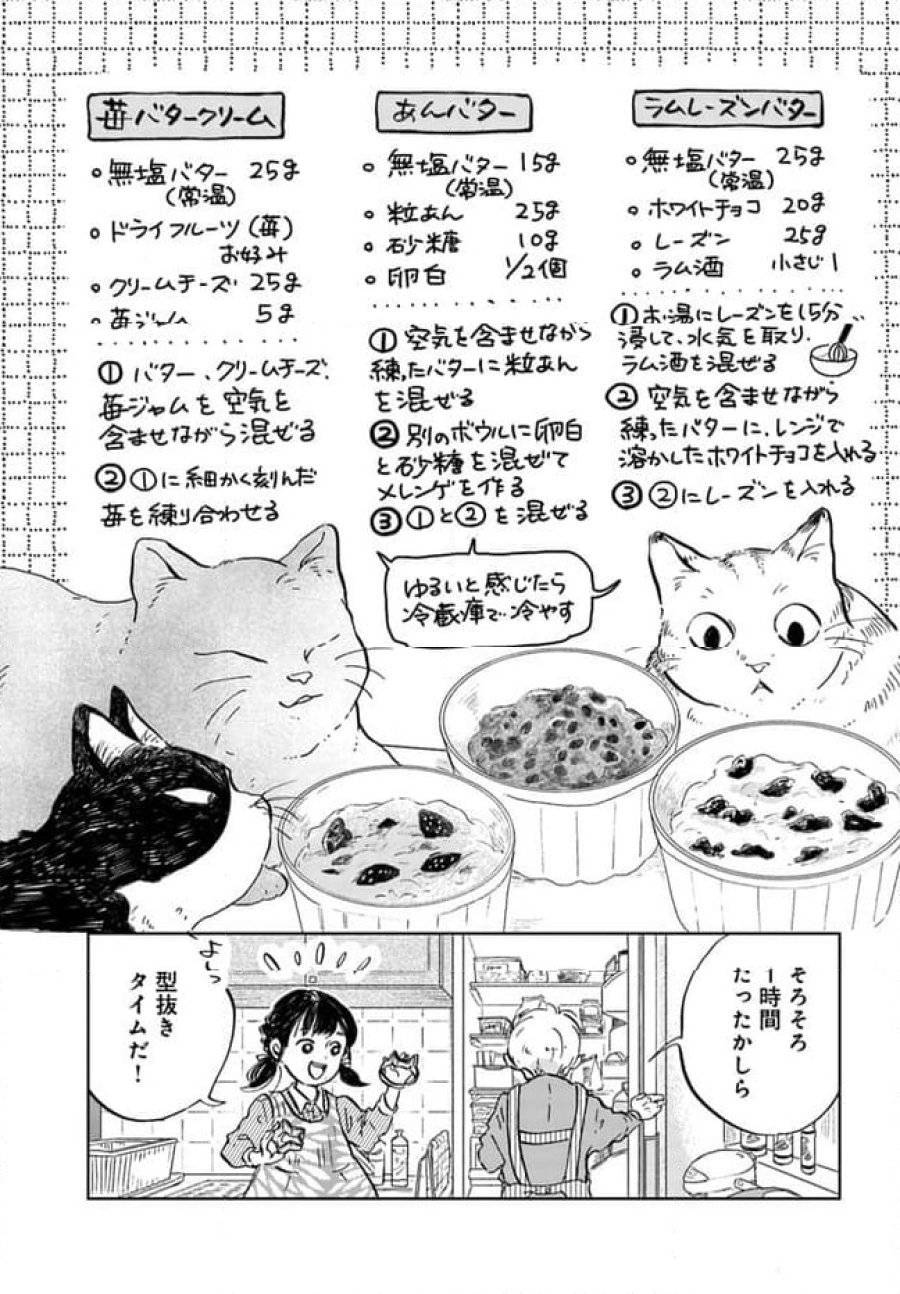 苺バタークリーム
○無塩バター 25g
(常温)
○ドライフルーツ(苺)
お好み
○クリームチーズ 25g
○苺ジャム 5g
①バター、クリームチーズ、
苺ジャムを空気を
含ませながら混ぜる
②①に細かく刻んだ
苺を練り合わせる
あんバター
○無塩バター 15g
(常温)
○粒あん 25g
○砂糖 10g
○卵白 1/2個
①空気を含ませながら
練ったバターに粒あん
を混ぜる
②別のボウルに卵白
と砂糖を混ぜて
メレンゲを作る
③①と②を混ぜる
ラムレーズンバター
○無塩バター 25g
(常温)
○ホワイトチョコ 20g
○レーズン 25g
○ラム酒 小さじ1
①お湯にレーズンを15分
浸して、水気を取り、
ラム酒を混ぜる
②空気を含ませながら
練ったバターに、レンジで
溶かしたホワイトチョコを入れる
③②にレーズンを入れる
ゆるいと感じたら
冷蔵庫で冷やす
そろそろ
1時間
たったかしら
よーっ
型抜き
タイムだ!